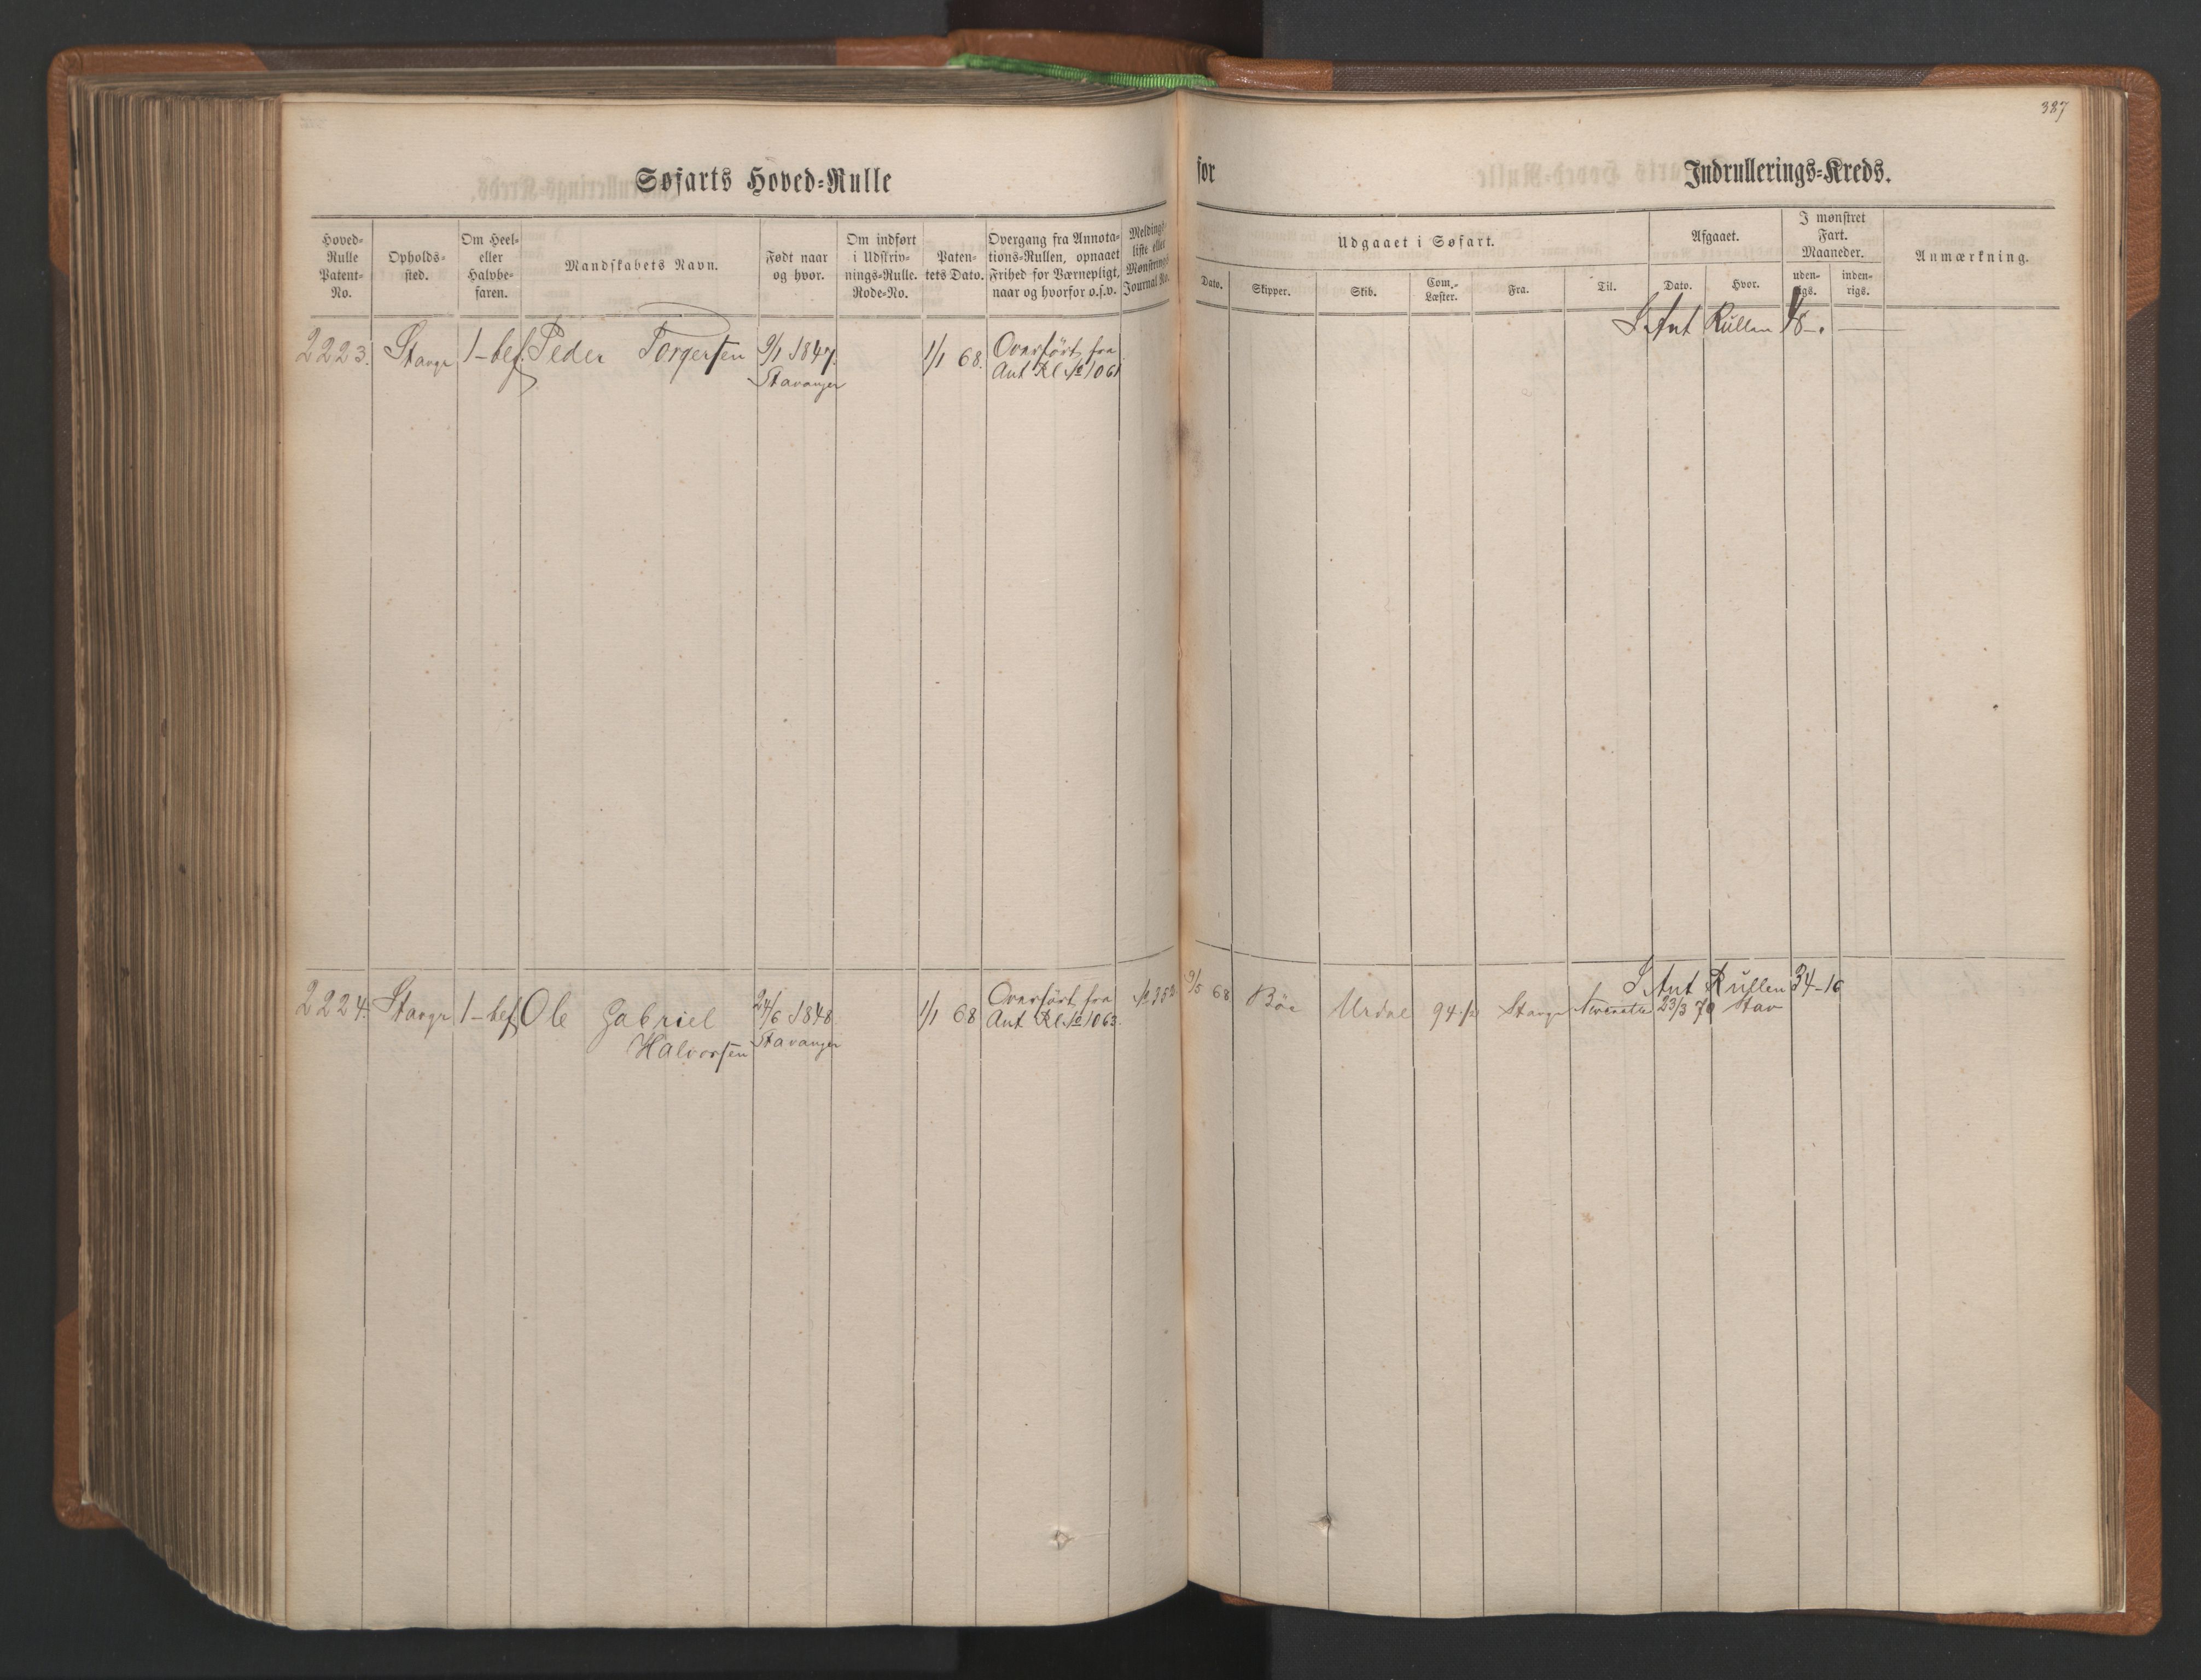 387
Søfarts Hoved-Rulle for Indrullerings-Kreds.
Hoved-Rulle Patent-No.
Opholds-sted.
Om Heel- eller Halvbe-faren.
Mandskabets Navn.
Født naar og hvor.
Om indført i Udskriv-nings-Rulle. Rode-No.
Paten-tets Dato.
Overgang fra Annota-tions-Rullen, opnaaet Frihed for Værnepligt, naar og hvorfor o.s.v.
Meldings-liste eller Mønstrings Journal No.
Udgaaet i Søfart.
Dato. Skipper. Skib. Com.-Læster. Fra. Til.
Afgaaet.
Dato. Hvor.
I mønstret Fart. Maaneder.
uden-rigs. inden-rigs.
Anmærkning.
I Ant Rullen
2223. Stavgr 1-bef. Peder Torgersen 9/1 1847. 1/1 68. Overført fra
Stavanger Ant Rl No 1061
I Ant Rullen 34-16
2224. Stavgr 1-bef Ole Gabriel 24/6 1848. 1/1 68 Overført fra 9/5 68 Bøe Urdae 94 1/2 Stavgr 23/3 70 Stav
Halvorsen Stavanger Ant Rl No 1063.